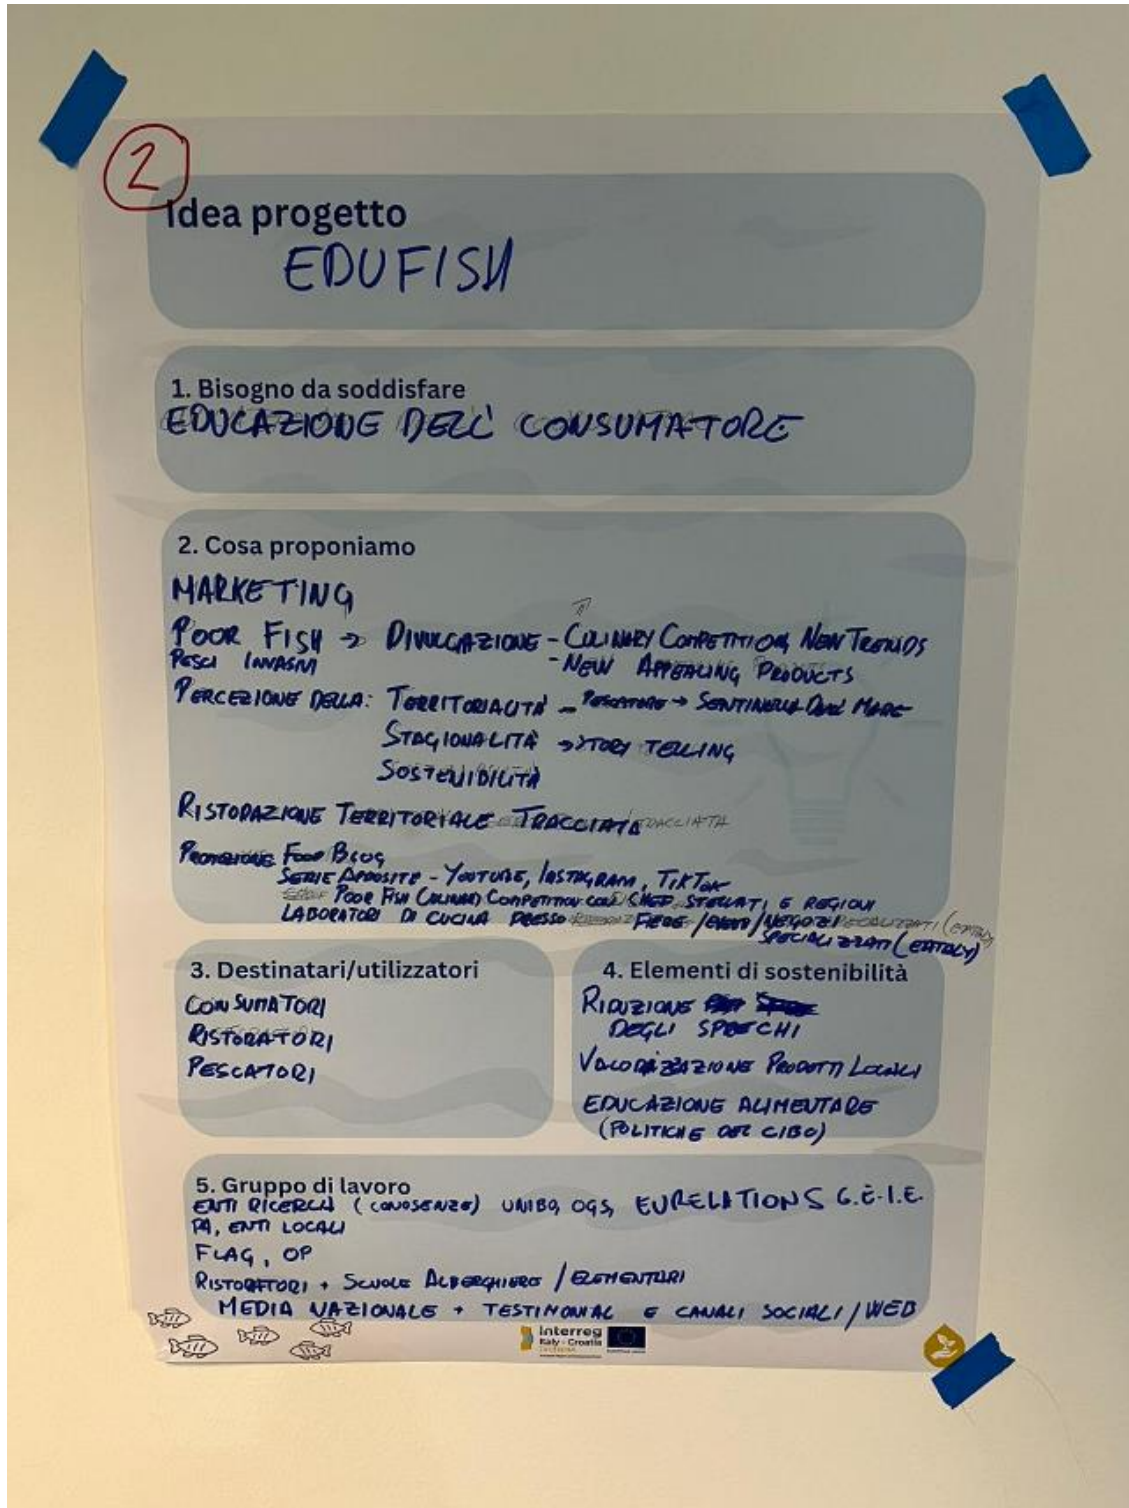 2
Idea progetto
EDUFISH
1. Bisogno da soddisfare
EDUCAZIONE DELL' CONSUMATORE
2. Cosa proponiamo
MARKETING
POOR FISH → DIVULGAZIONE - CULINARY COMPETITION, NEW TRENDS
PESCI INVASIVI
- NEW APPEALING PRODUCTS
PERCEZIONE DELLA: TERRITORIALITÀ - PESCATORE → SENTINELLA DELL' MARE
STAGIONALITÀ → STORY TELLING
SOSTENIBILITÀ
RISTORAZIONE TERRITORIALE TRACCIATA
PROMOZIONE FOOD BLOG
SERIE APPOSITE - YOUTUBE, INSTAGRAM, TIKTOK
POOR FISH CULINARY COMPETITION CON CHEF STELLATI E REGIONI
LABORATORI DI CUCINA PRESSO FIERE / EVENTI / NEGOZI
SPECIALIZZATI (EATALY)
3. Destinatari/utilizzatori
CONSUMATORI
RISTORATORI
PESCATORI
4. Elementi di sostenibilità
RIDUZIONE
DEGLI SPRECHI
VALORIZZAZIONE PRODOTTI LOCALI
EDUCAZIONE ALIMENTARE
(POLITICHE DEL CIBO)
5. Gruppo di lavoro
ENTI RICERCA (CONOSENZE) UNIBO, OGS, EURELATIONS G.E.I.E.
PA, ENTI LOCALI
FLAG, OP
RISTORATORI + SCUOLE ALBERGHIERE / ELEMENTARI
MEDIA NAZIONALE + TESTIMONIAL E CANALI SOCIALI / WEB
Interreg
Italy - Croatia